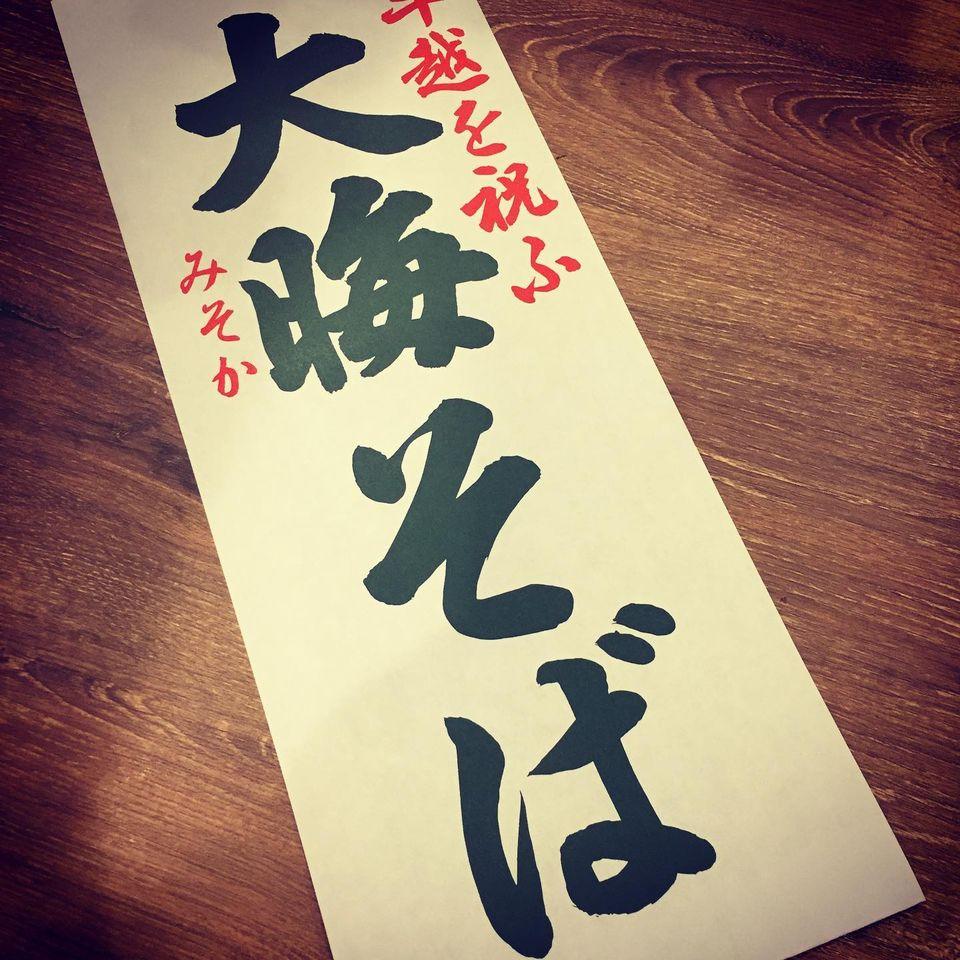 年越を祝ふ
大晦そば
みそか